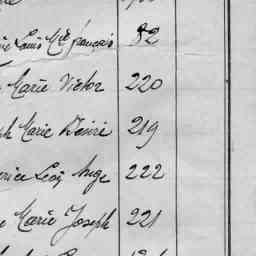 Louis Mie françois 82
Marie Victor 220
Marie Désiré 219
Léon Ange 222
Marie Joseph 221